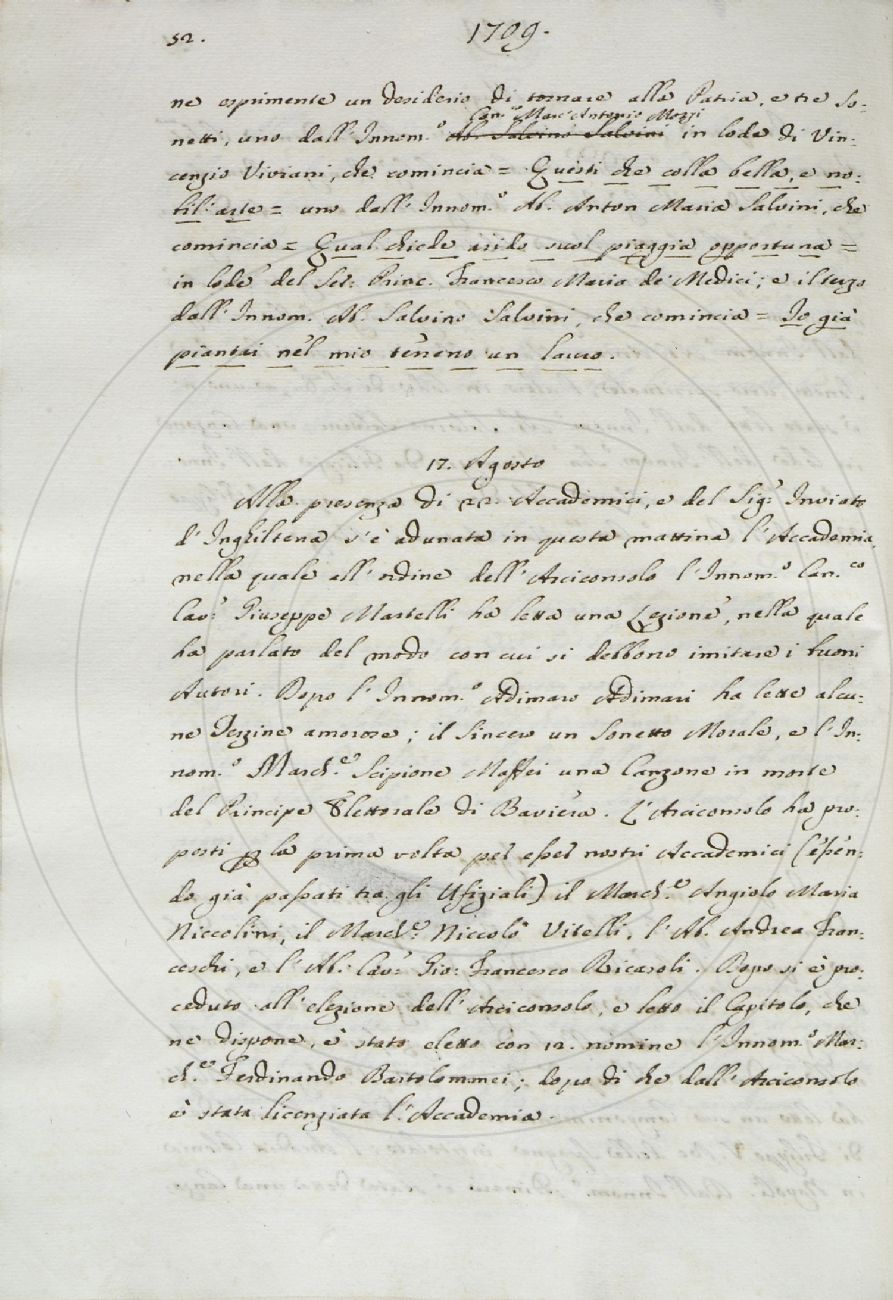 52.
1709.
ne esprimente un desiderio di tornare alla Patria, e tre So-
Can.º Marc'Antonio Mozzi
netti, uno dall'Innom.º Ab. Salvino Salvini in lode di Vin-
cenzio Viviani, che comincia = Questi che colla bella, e no-
bil'arte = uno dall'Innom.º Ab. Anton Maria Salvini, che
comincia = Qual chiede asilo suol piaggia opportuna =
in lode del Ser: Princ. Francesco Maria de' Medici; e il terzo
dall'Innom. Ab. Salvino Salvini, che comincia = Io già
piantai nel mio terreno un lauro.
17. Agosto
Alla presenza di 22. Accademici, e del Sig.r Inviato
d'Inghilterra s'è adunata in questa mattina l'Accademia,
nella quale all'ordine dell'Arciconsolo l'Innom.º Can.co
Cav.r Giuseppe Martelli ha letta una Lezione, nella quale
ha parlato del modo con cui si debbono imitare i buoni
Autori. Dopo l'Innom.º Adimaro Adimari ha lette alcu-
ne Terzine amorose; il Sincero un Sonetto Morale, e l'In-
nom.º March.e Scipione Maffei una Canzone in morte
del Principe Elettorale di Baviera. L'Arciconsolo ha pro-
posti p la prima volta per esser nostri Accademici (essen-
do già passati tra gli Ufiziali) il March.e Angiolo Maria
Niccolini, il March.e Niccolò Vitelli, l'Ab. Andrea Fran-
ceschi, e l'Ab. Cav.r Gio: Francesco Ricasoli. Dopo si è pro-
ceduto all'elezione dell'Arciconsolo, e letto il Capitolo, che
ne dispone, è stato eletto con 12. nomine l'Innom.º Mar-
ch.e Ferdinando Bartolommei; dopo di che dall'Arciconsolo
è stata licenziata l'Accademia.